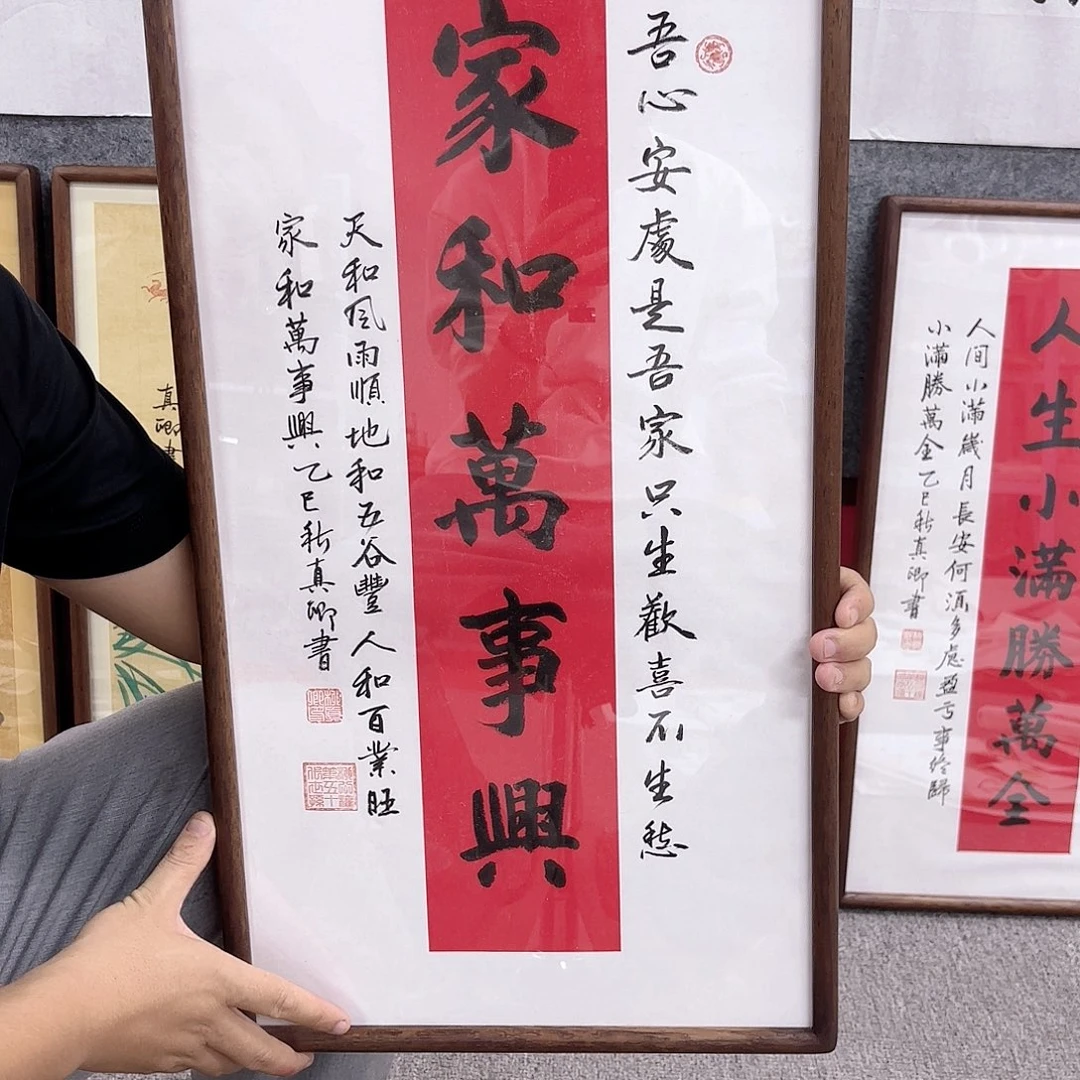 吾心安處是吾家只生歡喜不生愁
家和萬事興
天和風雨順地和五谷豐人和百業旺
家和萬事興乙巳秋真卿書
人生小滿勝萬全
人间小滿歲月長安何須多慮盈亏事終歸
小滿勝萬全乙巳秋真卿書
真卿書